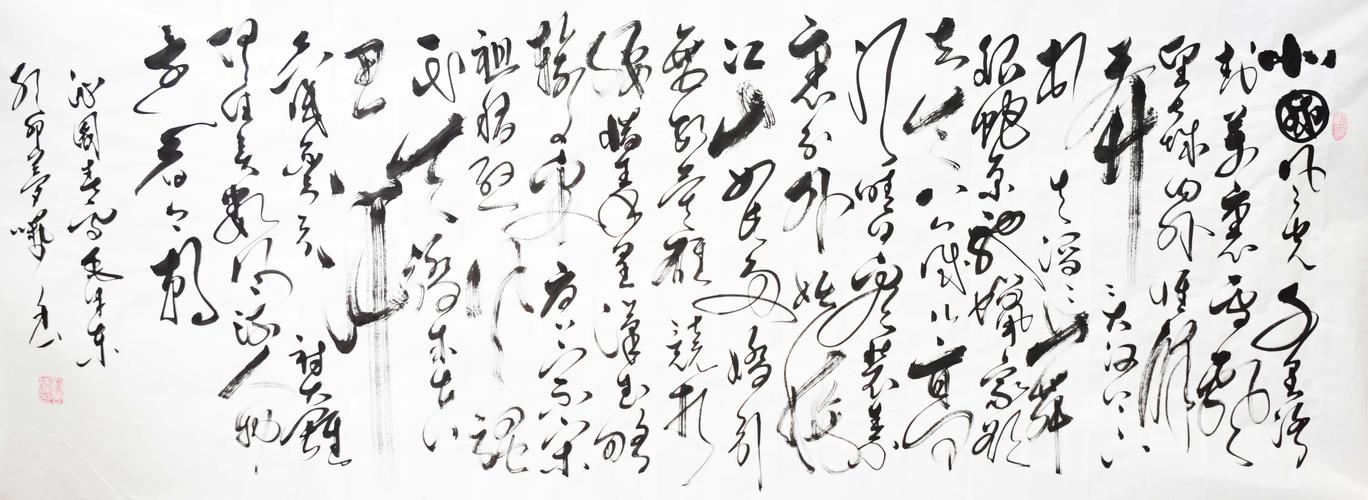 北国风光 千里冰
封万里雪飘
望长城内外惟馀
莽莽大河上下
顿失滔滔山舞
银蛇原驰蜡象欲
与天公试比高须
晴日看红装素
裹分外妖娆
江山如此多娇引
无数英雄竞折
腰惜秦皇汉武略
输文采唐宗宋
祖稍逊风骚
一代天骄成吉
思汗
只识弯弓射大雕
俱往矣数风流人物
还看今朝
沁园春雪毛泽东